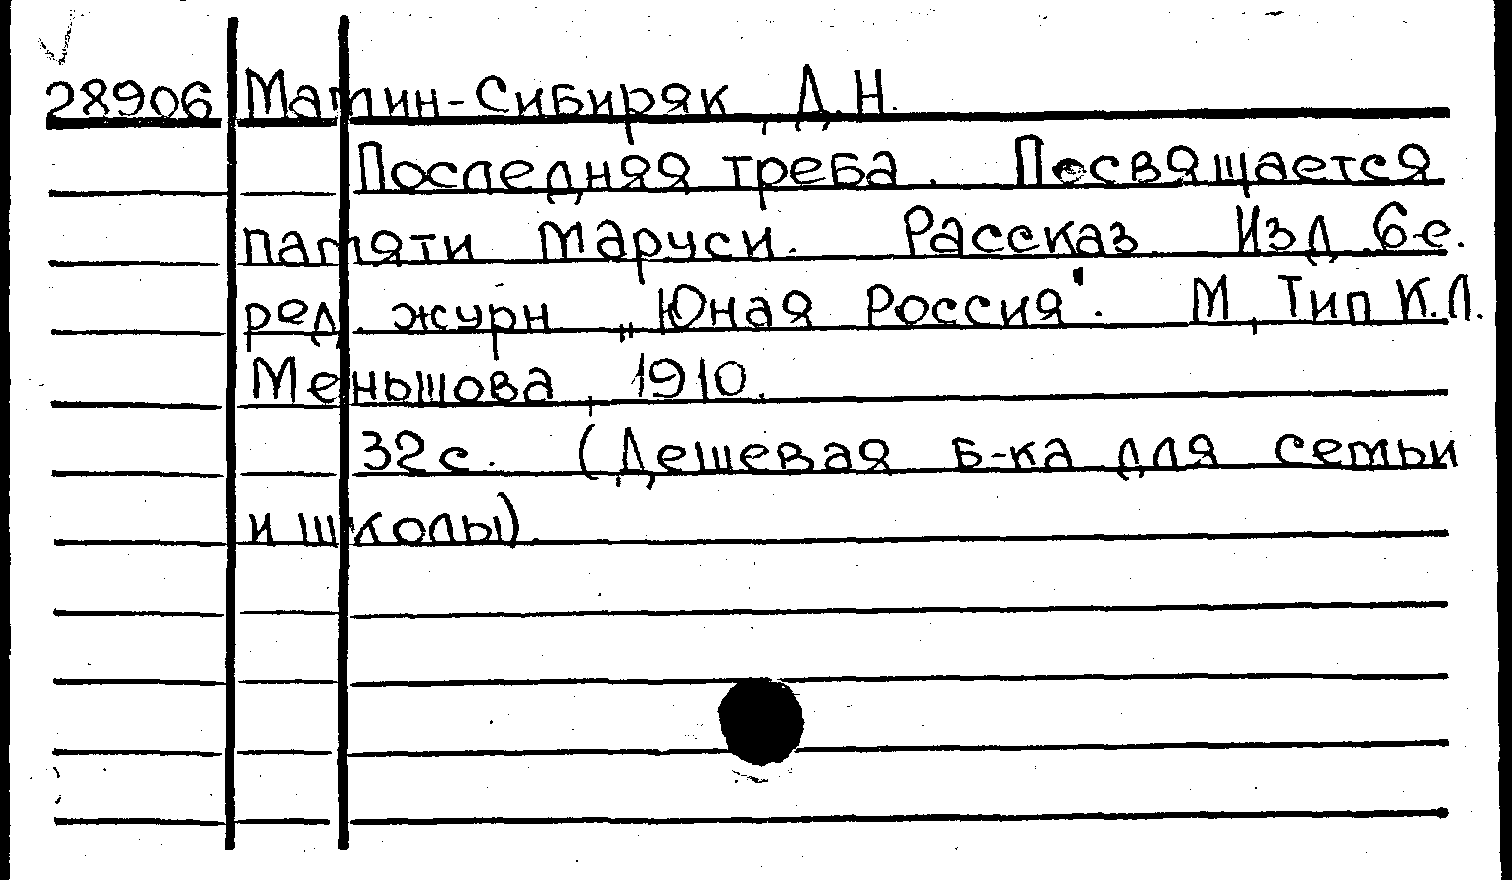 28906 Мамин-Сибиряк, Д.Н.
Последняя треба. Посвящается
памяти Маруси. Рассказ. Изд. 6-е.
ред. журн. „Юная Россия". М., Тип К.Л.
Меньшова, 1910.
32с. (Дешевая б-ка для семьи
и школы).